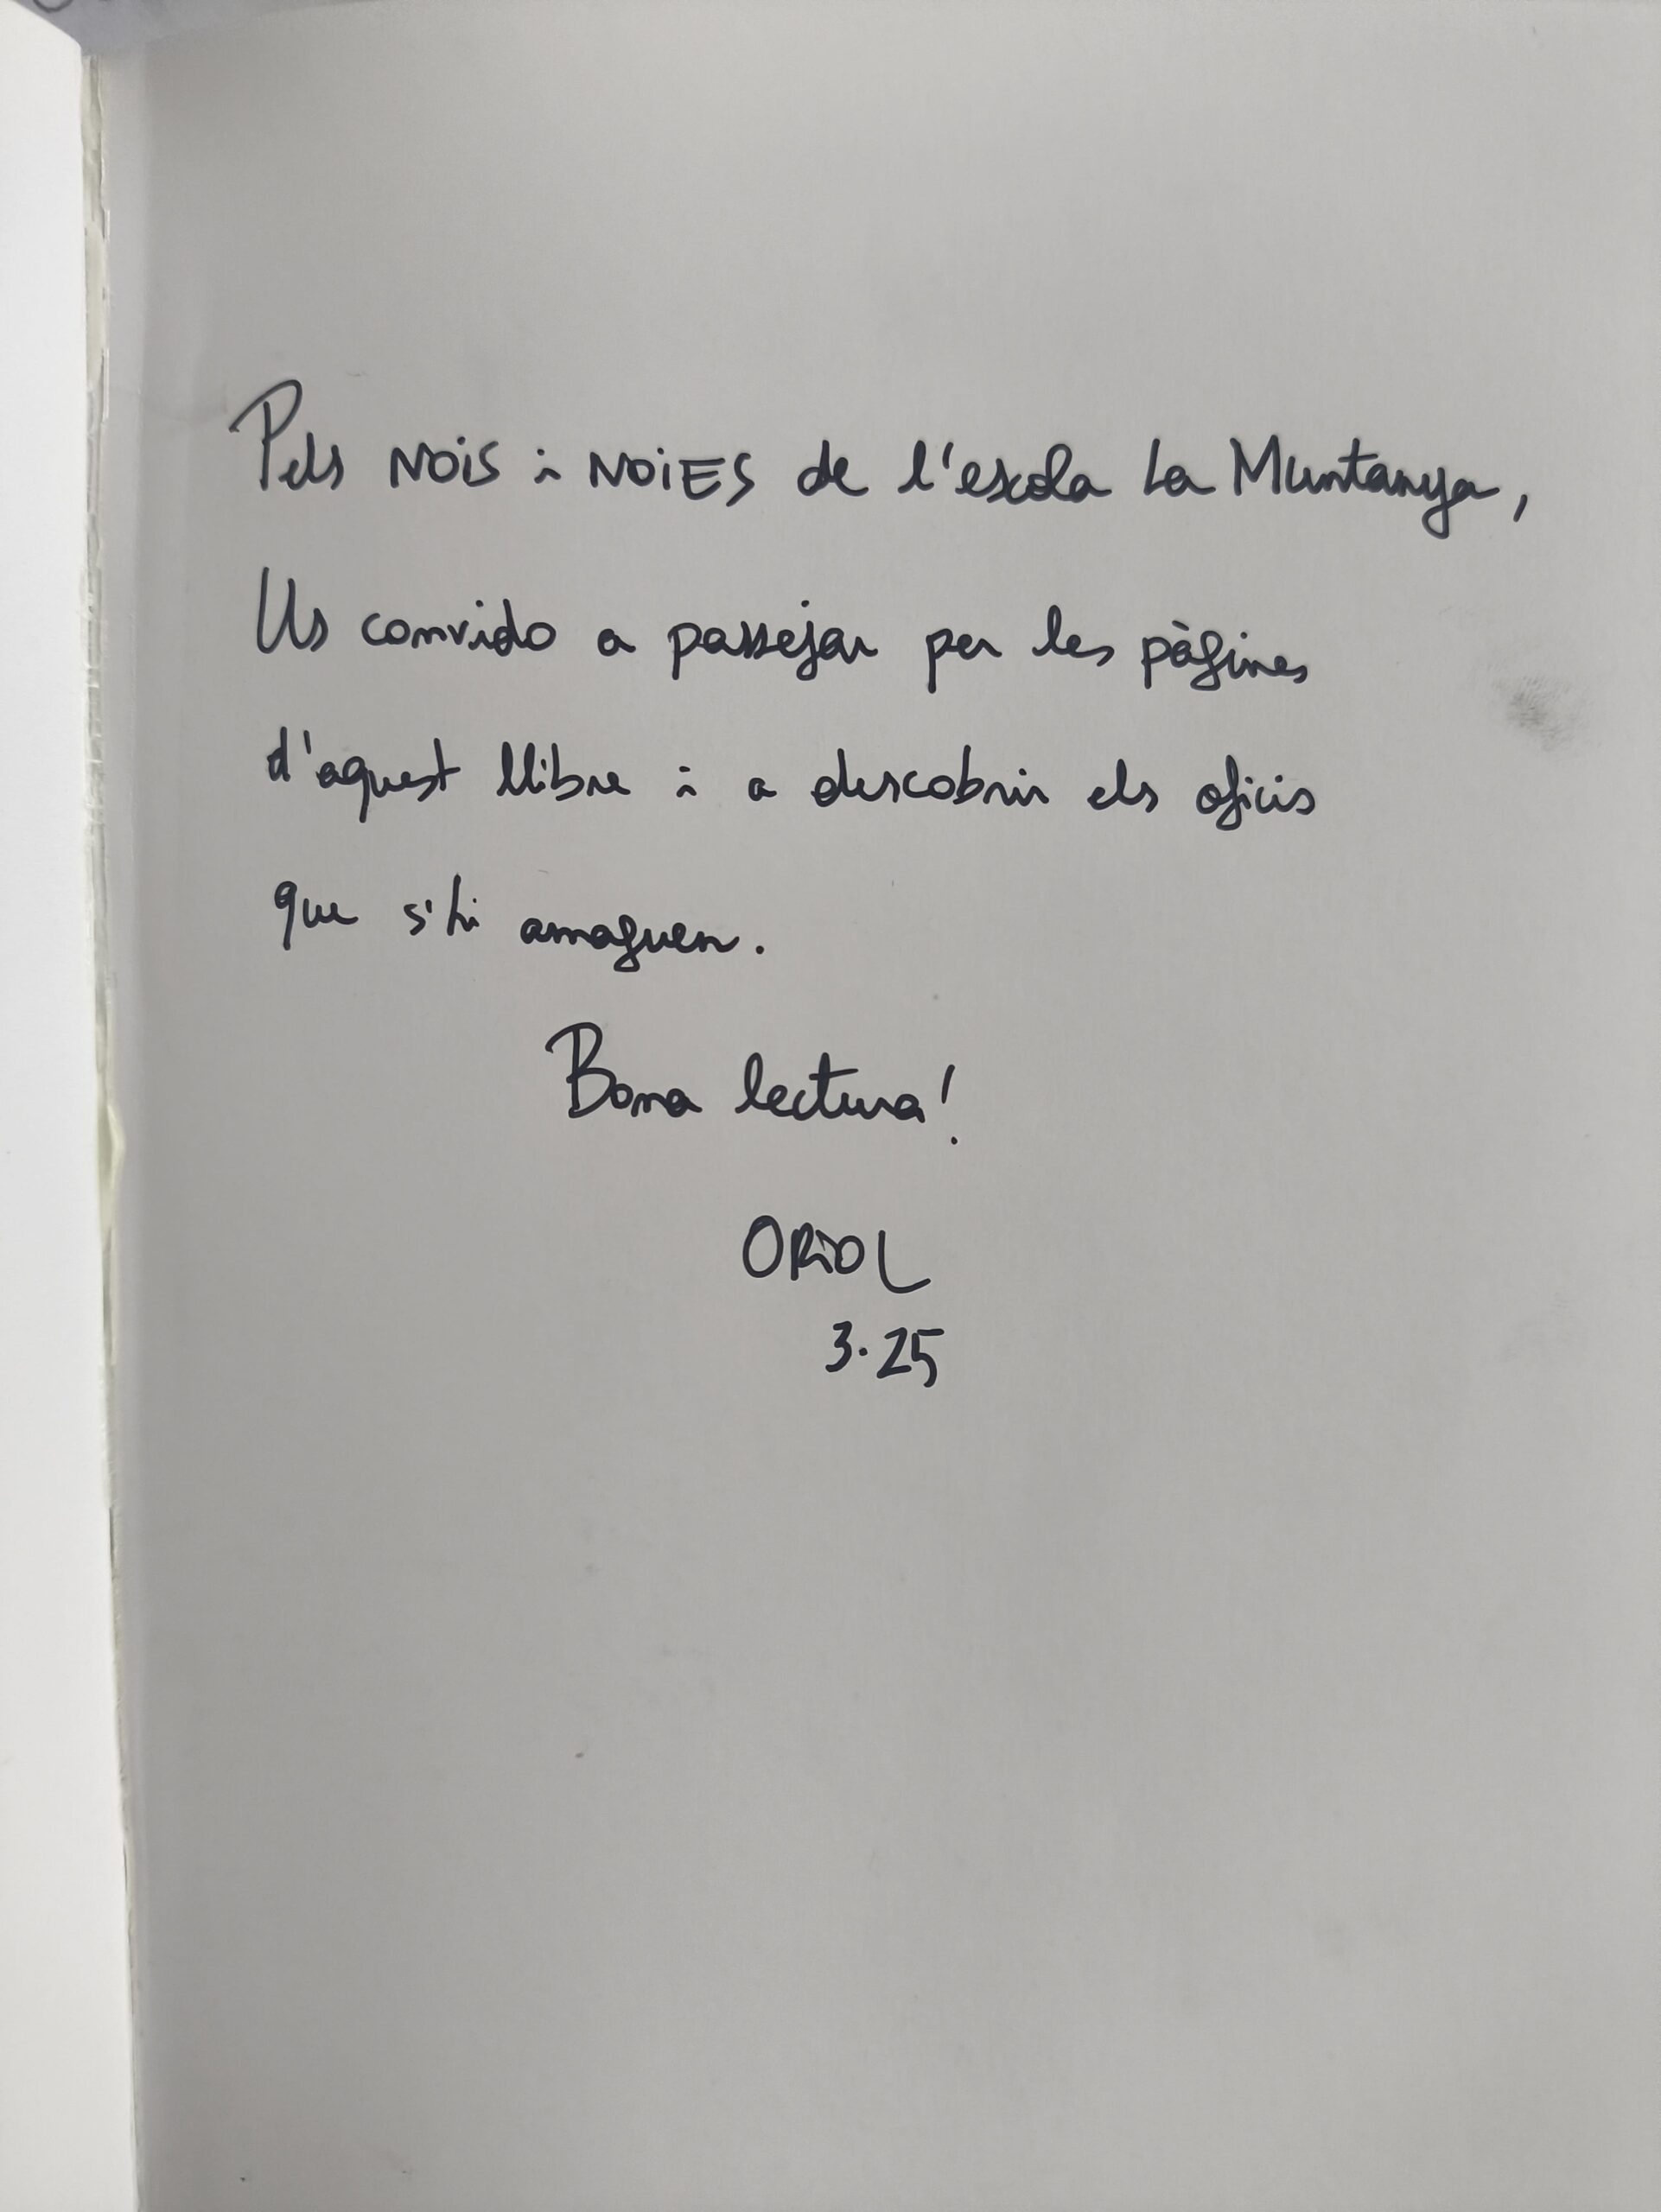 Pels NOiS i NOiES de l'escola La Muntanya,
Us convido a passejar per les pàgines
d'aquest llibre i a descobrir els oficis
que s'hi amaguen.
Bona lectura!
ORiOL
3.25